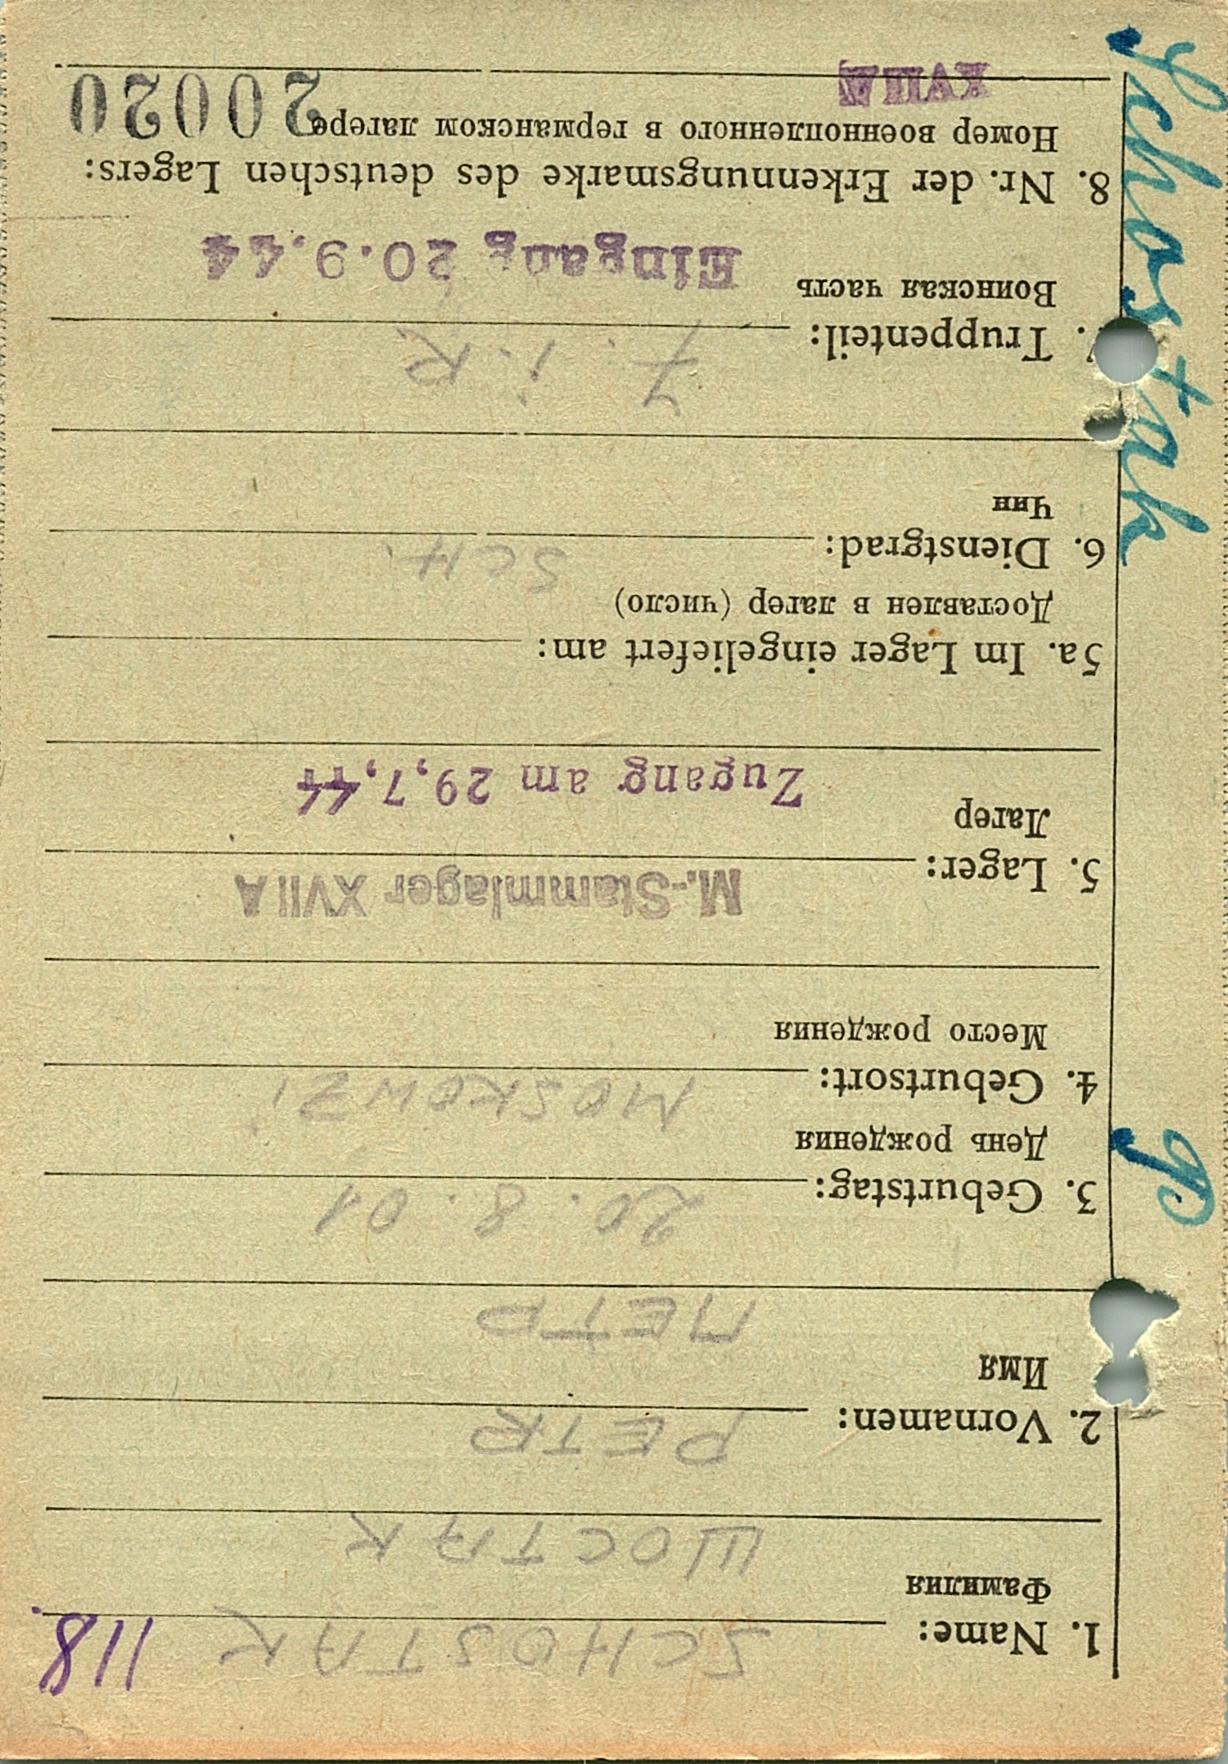 118.
1. Name: SCHOSTAK
Фамилия
ШОСТАК
2. Vornamen: PETR
Имя
ПЕТР
3. Geburtstag: 20. 8. 01
День рождения
4. Geburtsort: MOSKOWZI
Место рождения
5. Lager: M.-Stammlager XVII A
Лагер
Zugang am 29,7,44
5a. Im Lager eingeliefert am:
Доставлен в лагер (число)
6. Dienstgrad: SCH.
Чин
7. Truppenteil: 7. i. R.
Воинская часть
Eingang 20.9.44
8. Nr. der Erkennungsmarke des deutschen Lagers:
Номер военнопленного в германском лагере 20020
XVII A
Schostak